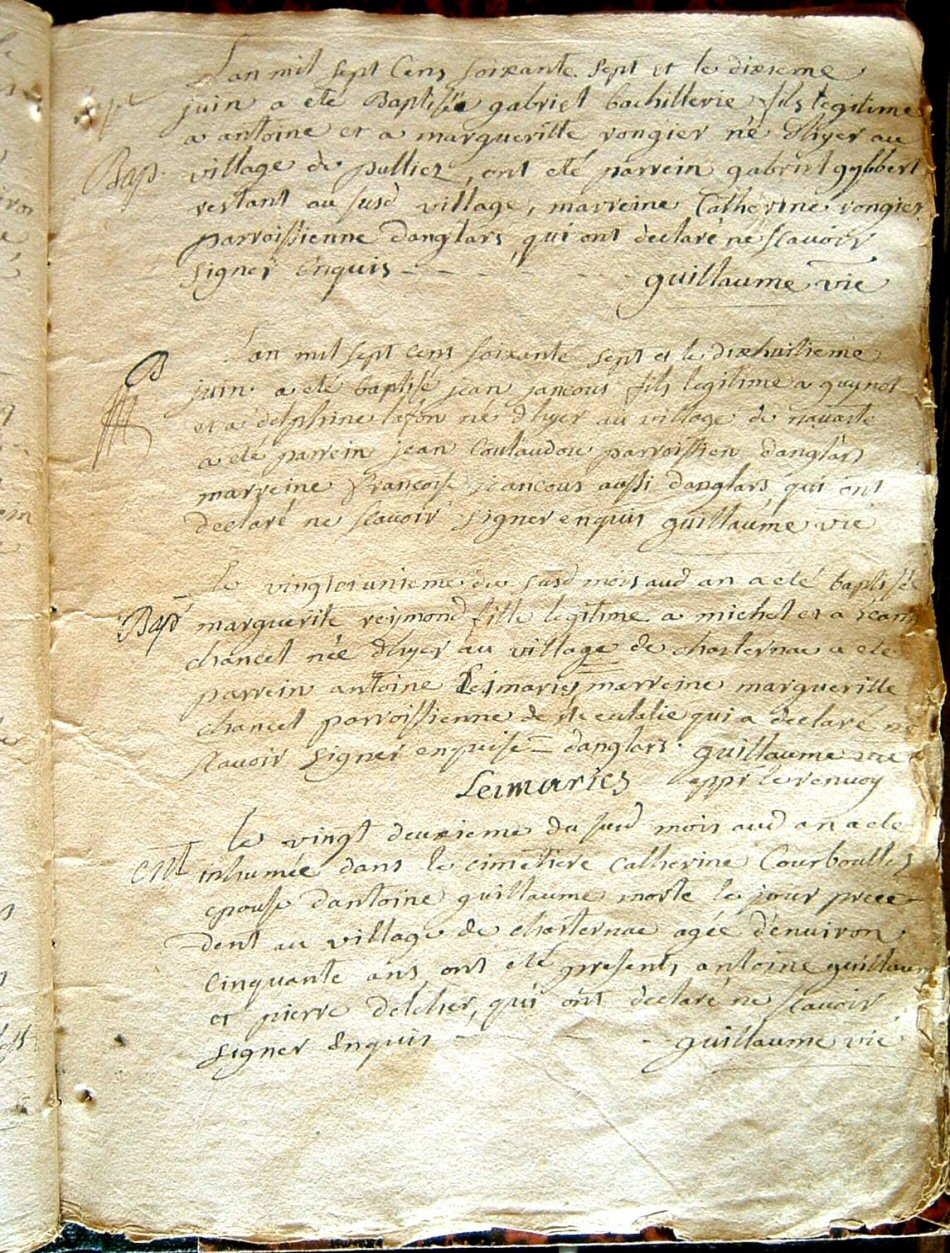 L'an mil sept cens soixante sept et le dixieme
juin a eté Baptisé gabriel bachillerie fils legitime
a antoine et a margueritte rongier né d'hyer au
Bap village de pulliez, ont eté parrein gabriel gybbert
restant au susd village, marreine Catherine rongier
parroissienne danglars, qui ont declaré ne scavoir
signer Enquis - - - - - - guillaume vie
L'an mil sept cens soixante sept et le dixhuitieme
B juin a eté baptisé jean jancous fils legitime a guynot
et a delphine lafon né d'hyer au village de navaste
a eté parrein jean Coulaudou parroissien danglars
marreine francoise jancous aussi danglars, qui ont
declaré ne scavoir signer enquis guillaume vié
Le vingtetunieme du susd mois aud an a eté baptisée
Bap marguerite reymond fille legitime a michel et a jean
chancel née d'hyer au village de chasternac a eté
parrein antoine Leimaries marreine margueritte
chancel parroissienne de ste eulalie qui a declaré n
scavoir signer enquise = danglars. guillaume vie
Leimaries appr le renvoy
le vingt deuxieme du susd mois aud an a eté
ent inhumée dans le cimetiere Catherine Courboulles
epouse d'antoine guillaume morte le jour prece-
dent au village de chasternac agée d'environ
Cinquante ans, ont eté presents antoine guillaum
et pierre delcher, qui ont declaré ne scavoir
signer Enquis - - - guillaume vié